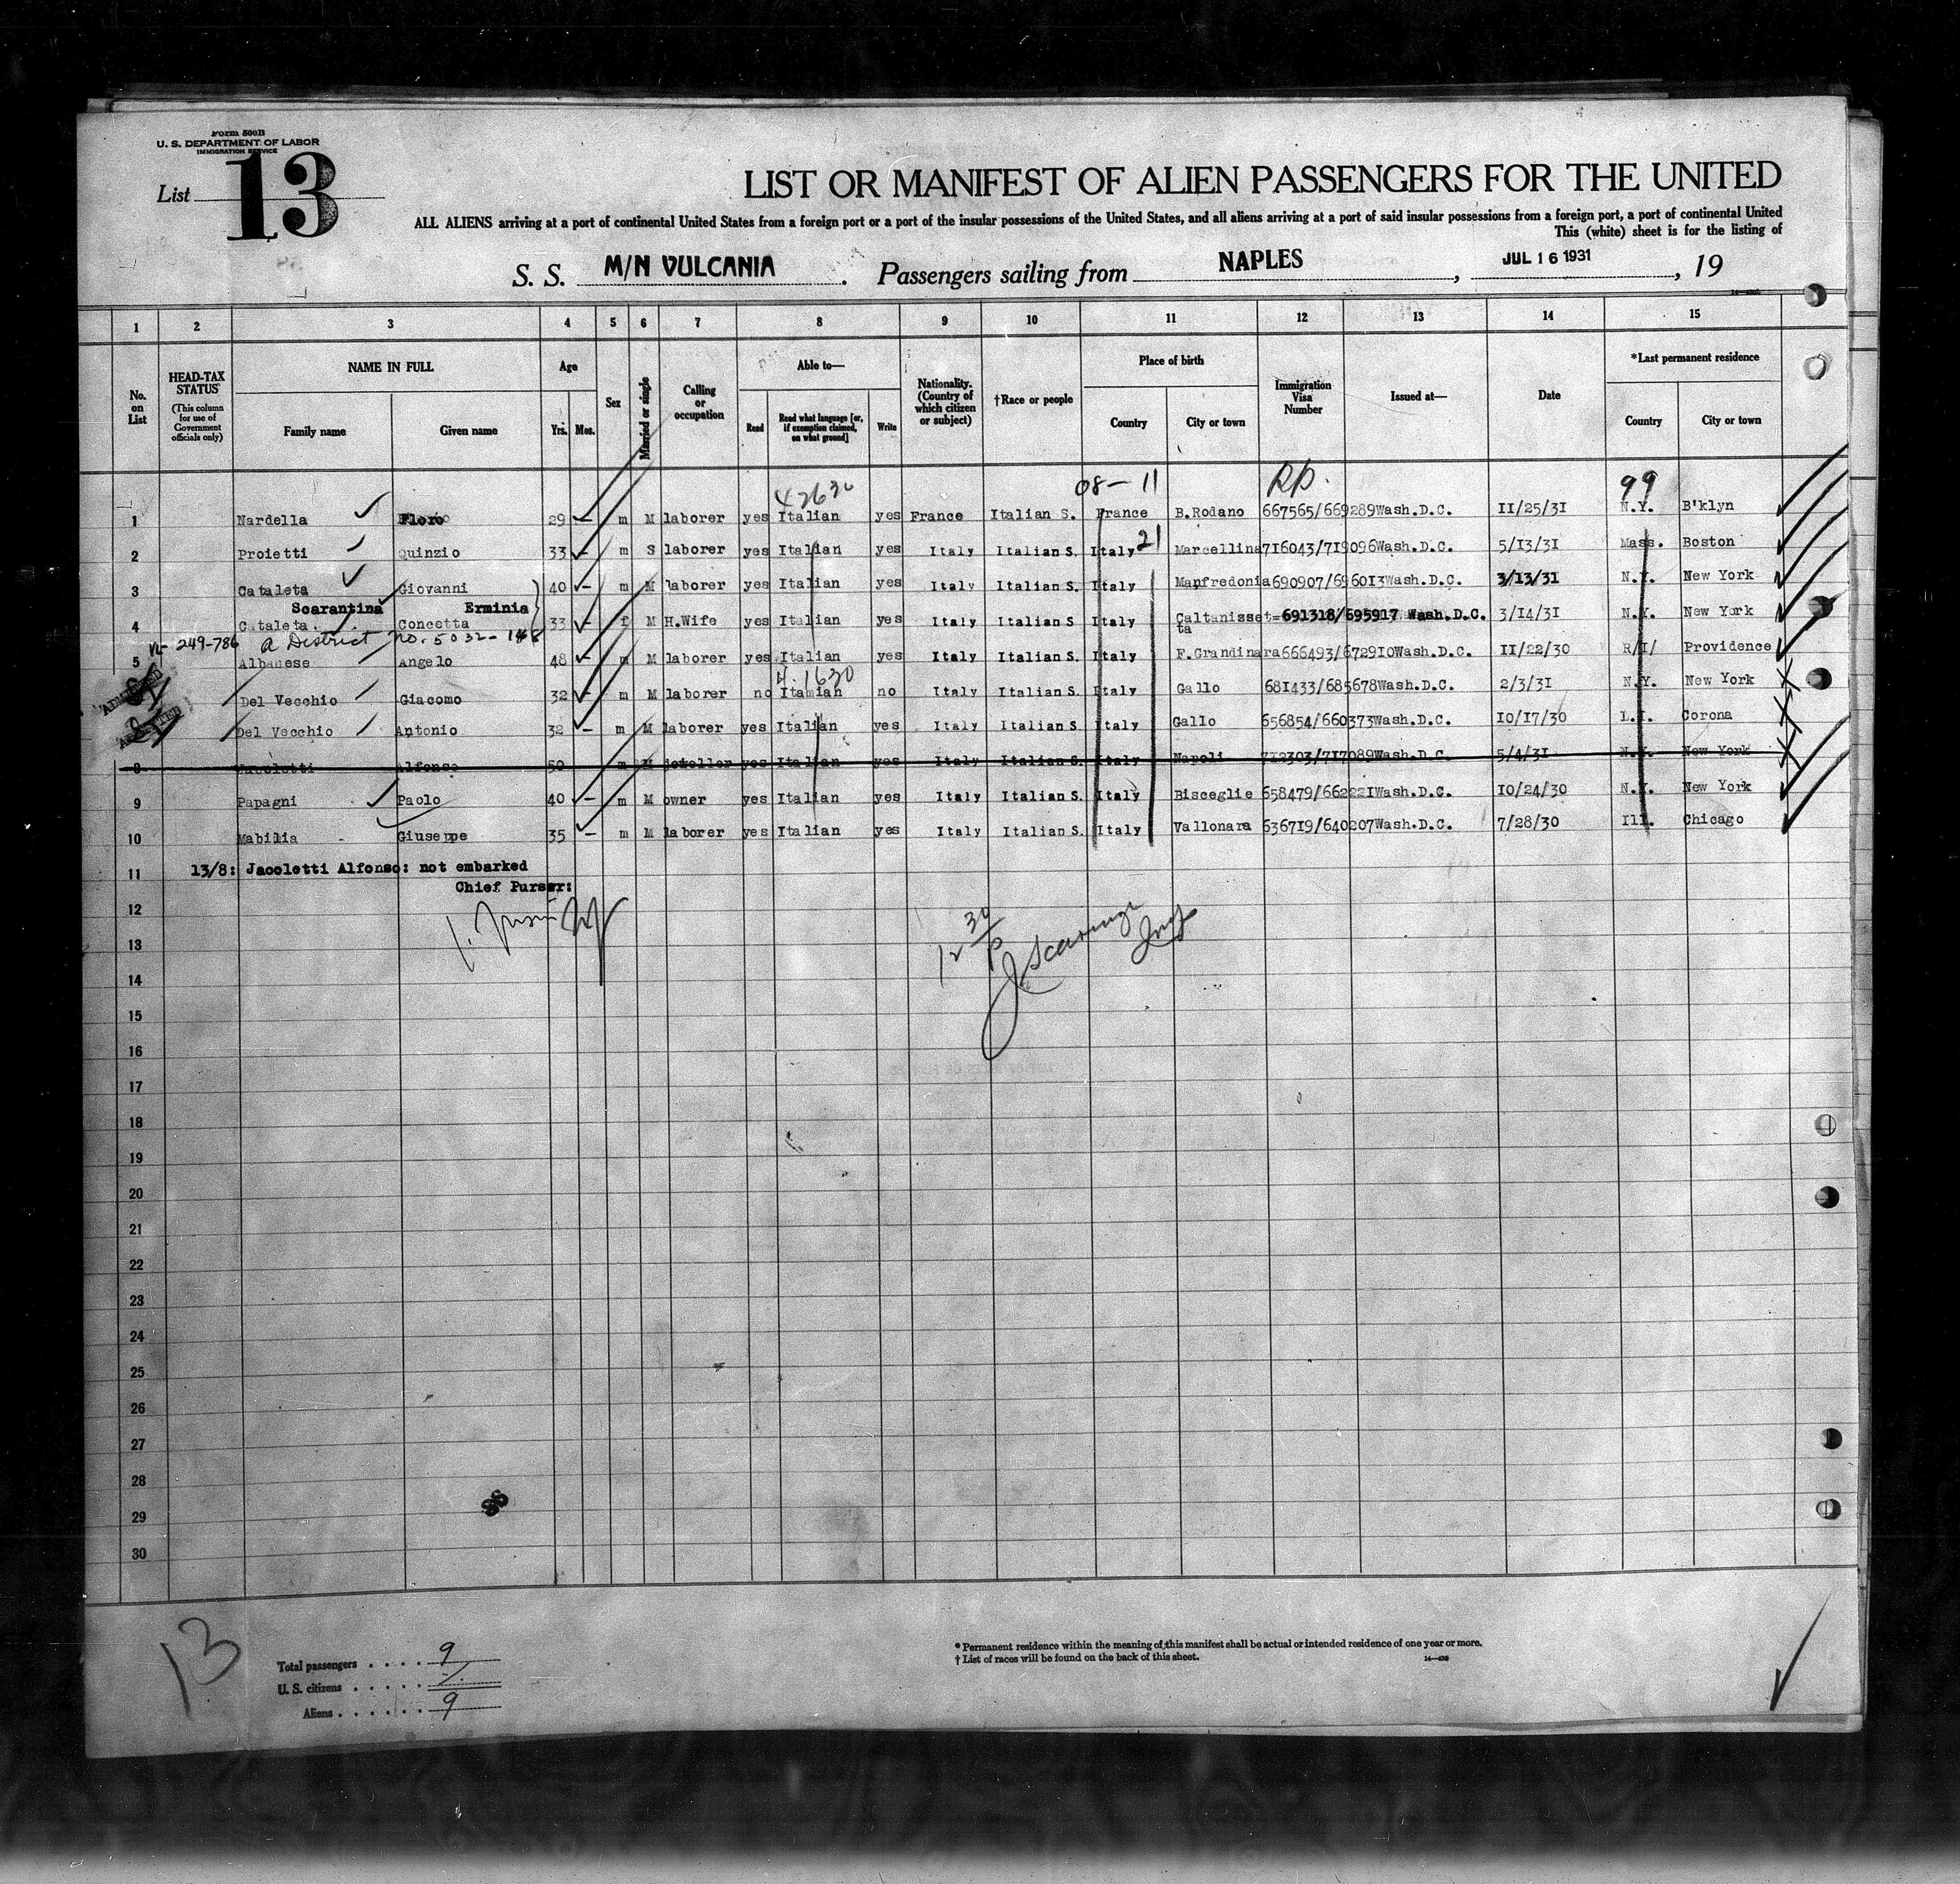 Form 500B
U. S. DEPARTMENT OF LABOR
IMMIGRATION SERVICE
List 13
LIST OR MANIFEST OF ALIEN PASSENGERS FOR THE UNITED
ALL ALIENS arriving at a port of continental United States from a foreign port or a port of the insular possessions of the United States, and all aliens arriving at a port of said insular possessions from a foreign port, a port of continental United
This (white) sheet is for the listing of
S. S. M/N VULCANIA. Passengers sailing from NAPLES, JUL 16 1931, 19
1 2 3 4 5 6 7 8 9 10 11 12 13 14 15
No. on List
HEAD-TAX STATUS (This column for use of Government officials only)
NAME IN FULL
Family name Given name
Age
Yrs. Mos.
Sex
Married or single
Calling or occupation
Able to—
Read
Read what language [or, if exemption claimed, on what ground]
Write
Nationality. (Country of which citizen or subject)
†Race or people
Place of birth
Country City or town
Immigration Visa Number
Issued at—
Date
*Last permanent residence
Country City or town
08-11 99
1 Nardella Floro 29 - m M laborer yes Italian yes France Italian S. France B.Rodano 667565/669289 Wash.D.C. 11/25/31 N.Y. B'klyn
21
2 Proietti Quinzio 33 - m S laborer yes Italian yes Italy Italian S. Italy Marcellina 716043/719096 Wash.D.C. 5/13/31 Mass. Boston
3 Cataleta Giovanni 40 - m M laborer yes Italian yes Italy Italian S. Italy Manfredonia 690907/696013 Wash.D.C. 3/13/31 N.Y. New York
Scarantina Erminia
4 Cataleta Concetta 33 - f M H.Wife yes Italian yes Italy Italian S. Italy Caltanisset=ta 691318/695917 Wash.D.C. 3/14/31 N.Y. New York
249-786 a District no. 5032-148
5 Albanese Angelo 48 - m M laborer yes Italian yes Italy Italian S. Italy F.Grandinara 666493/672910 Wash.D.C. 11/22/30 R/I/ Providence
ADMITTED
Del Vecchio Giacomo 32 - m M laborer no Itamian no Italy Italian S. Italy Gallo 681433/685678 Wash.D.C. 2/3/31 N.Y. New York
Del Vecchio Antonio 32 - m M laborer yes Italian yes Italy Italian S. Italy Gallo 656854/660373 Wash.D.C. 10/17/30 L.I. Corona
8 Alfonso 50 m M jeweller yes Italian yes Italy Italian S. Italy Napoli 712303/717089 Wash.D.C. 5/4/31 N.Y. New York
9 Papagni Paolo 40 - m M owner yes Italian yes Italy Italian S. Italy Bisceglie 658479/662221 Wash.D.C. 10/24/30 N.Y. New York
10 Mabilia Giuseppe 35 - m M laborer yes Italian yes Italy Italian S. Italy Vallonara 636719/640207 Wash.D.C. 7/28/30 Ill. Chicago
11 13/8: Jacoletti Alfonso: not embarked
Chief Purser:
12
13
14
15
16
17
18
19
20
21
22
23
24
25
26
27
28
29
30
13
Total passengers . . . . 9
U. S. citizens . . . . .
Aliens . . . . . . 9
* Permanent residence within the meaning of this manifest shall be actual or intended residence of one year or more.
† List of races will be found on the back of this sheet.